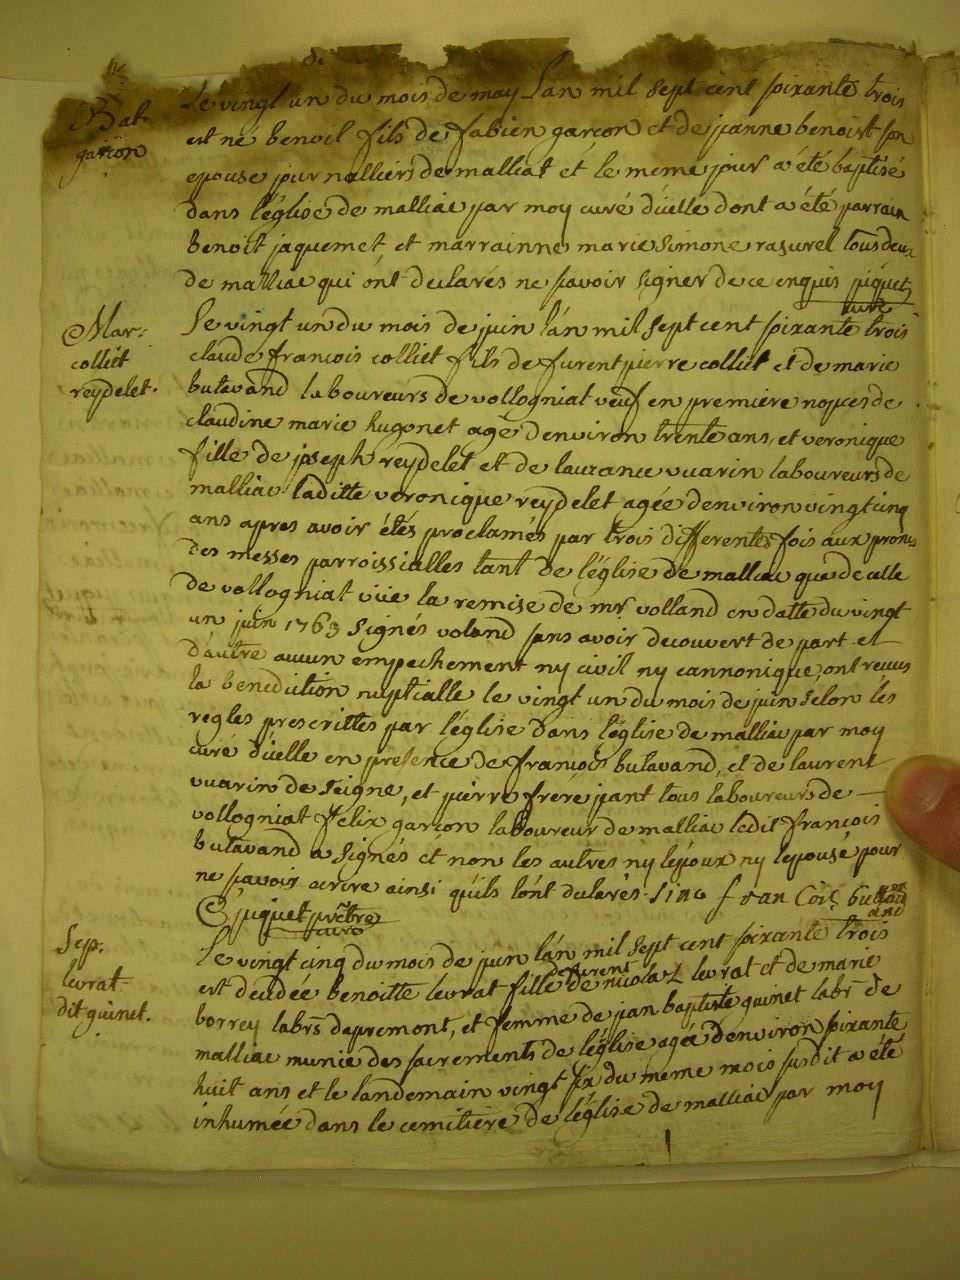 Bat.
garçon
Le vingt un du mois de may L'an mil sept cent soixante trois
est né benoit fils de fabien garçon et de jeanne benoist son
epouse journalliers de malliat et le meme jour a été baptisé
dans l'église de malliac par moy curé d'icelle dont a été parrain
benoit jaquemet et marrainne marie simone rasurel tous deux
de malliac qui ont declarés ne savoir signer de ce enquis juquet
curé
Mar:
colliet
reydelet.
Le vingt un du mois de juin l'an mil sept cent soixante trois
claude françois colliet fils de furent pierre colliet et de marie
butavand laboureurs de vollogniat veuf en premiere nopces de
claudine marie hugonet agé d'environ trente ans, et veronique
fille de joseph reydelet et de laurance vuarin laboureurs de
malliac laditte veronique reydelet agée d'environ vingt cinq
ans apres avoir étés proclamés par trois differentes fois aux prones
des messes parroissialles tant de l'église de malliac que de celle
de vollogniat vüe la remise de mr volland en datte du vingt
un juin 1763 signés voland sans avoir decouvert de part et
d'autre aucun empechement ny civil ny cannonique, ont recuus
la benediction nuptialle le vingt un du mois de juin selon les
regles prescrittes par l'église dans l'église de malliac par moy
curé d'icelle en presence de françois butavand, et de laurent
vuarin de seigne, et pierre frere jant tous laboureurs de
vollogniat felix garçon laboureur de malliac ledit françois
butavand a signés et non les autres ny lepoux ny lepousé pour
ne savoir ecrire ainsi qu'ils l'ont declarés. sine fran Cois
juquet prêtre
curé
Sep:
levrat
dit guinet.
Le vingt cinq du mois de juin l'an mil sept cent soixante trois
est decedée benoitte levrat fille de furent nicolaz levrat et de marie
borrey labrs d'apremont, et femme de jean baptiste guinet labr de
malliac munie des sacrements de l'église agée d'environ soixante
huit ans et le landemain vingt six du meme mois susdit a été
inhumée dans le cemitiere de l'église de malliac par moy